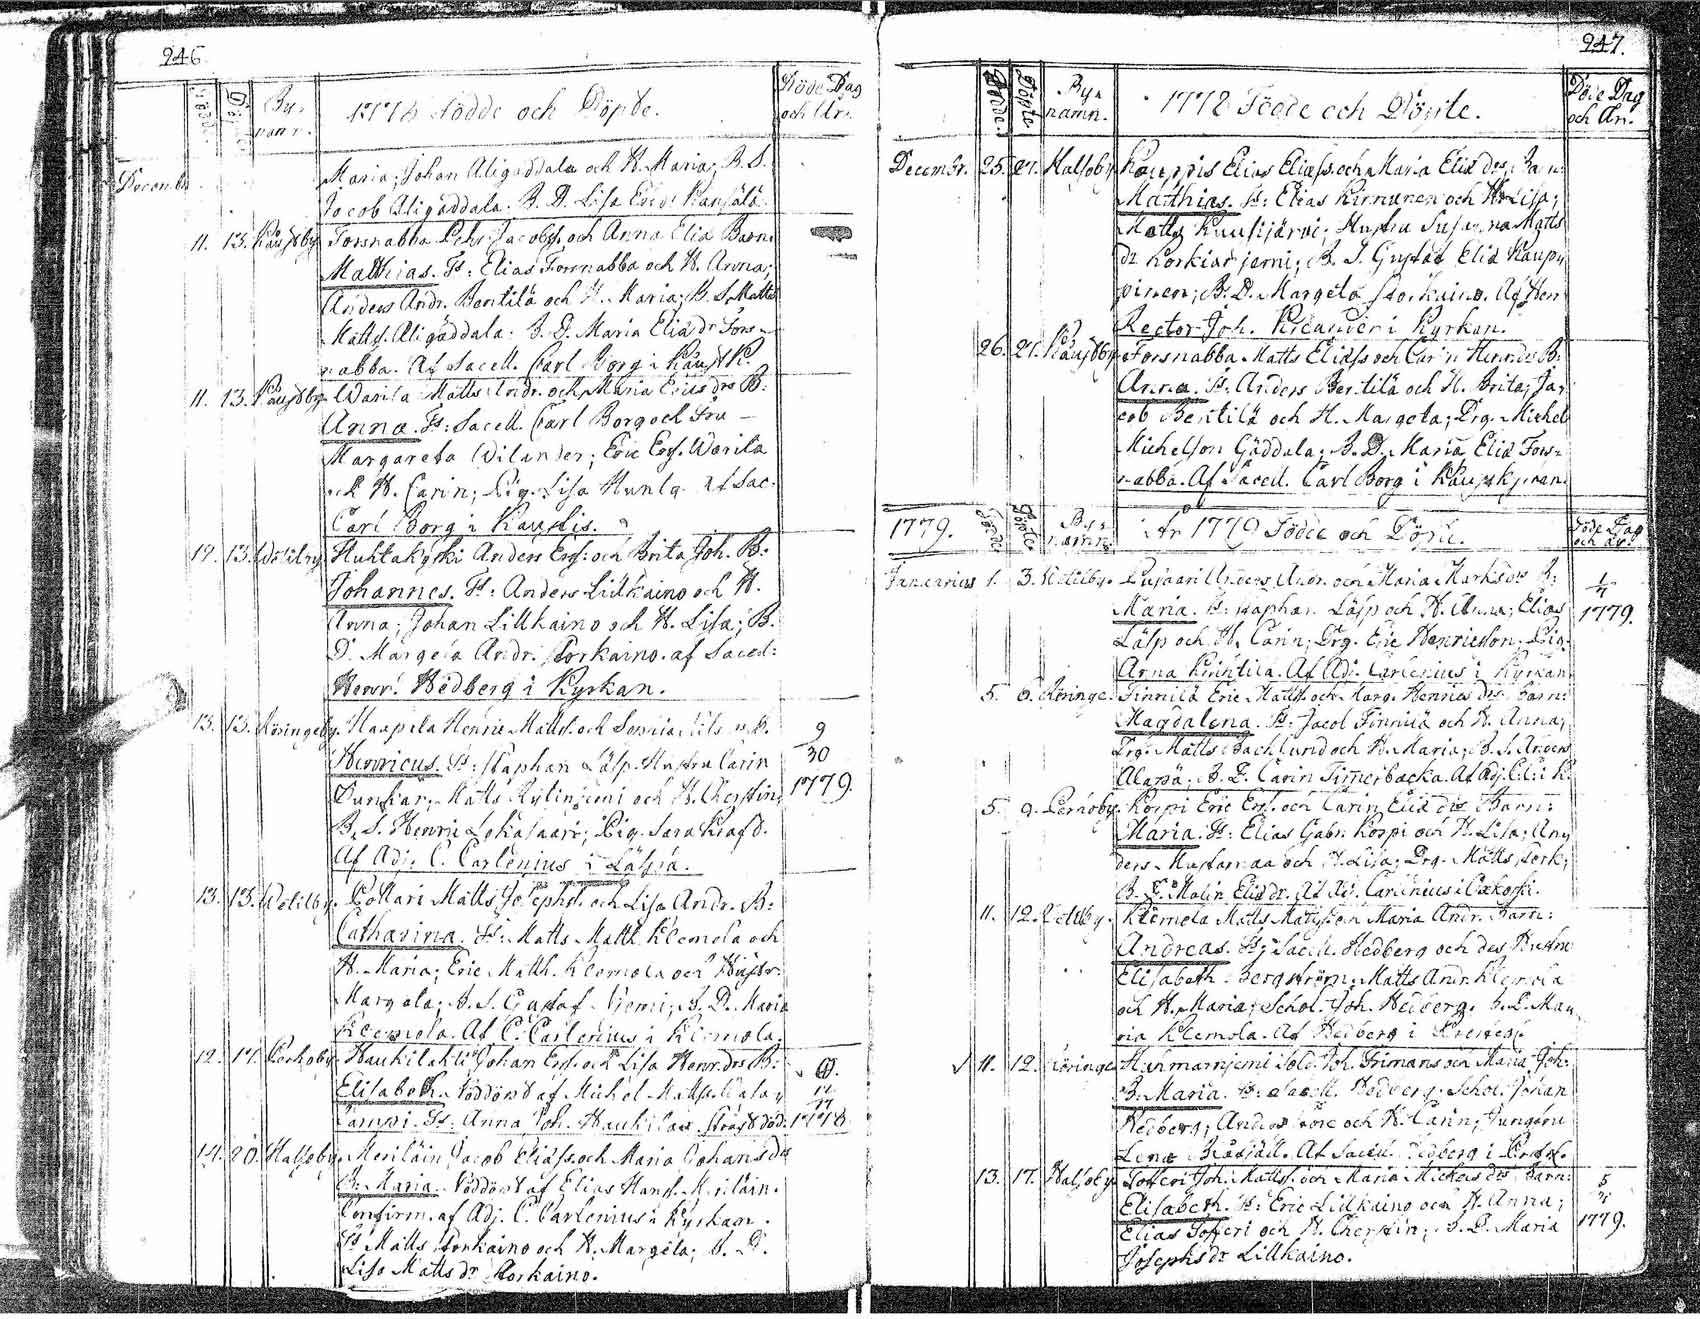 246.
Födde
Döpte
By-
namn.
1778 Födde och Döpte.
Döde Dag
och År.
Decemb.
Maria; Johan Aligåddala och H. Maria; B. S.
Jacob Aligåddala. B. D. Lisa
11. 13. Kaustby
Forsnabba Pehr Jacobss. och Anna Eliæ Barn
Matthias. Ts: Elias Forsnabba och H. Anna;
Anders Andr. Bentilä och H. Maria; B. S. Matts
Matts. Aligåddala. B. D. Maria Eliæ dr Fors-
nabba. Af Sacell. Carl Borg i Kaust K.
11. 13. Kaustby
Warila Matts Andr. och Maria Erics drs B:
Anna. Ts: Sacell. Carl Borg och Fru
Margareta Wilander; Eric Ers. Warila
och H. Carin; Pig. Lisa Huntg. Af Sac.
Carl Borg i Kaustis.
13. Wetilby
Huhtakyski Anders Ers. och Brita Joh. B:
Johannes. Ts: Anders Lillkaino och H.
Anna; Johan Lillkaino och H. Lisa; B.
D. Margeta Andr. Storkaino. af Sacell:
Henr. Hedberg i Kyrkan.
13. 13. Röringeby.
Haapela Henric Matts. och
Henricus. Ts: Staphan Läsp. Hustru Carin
Dunkar; Matts Rytinjemi och H. Cherstin;
B. S. Henric Lokasaari; Pig. Sara
Af Adj. C. Carlenius i Läspä.
9
30
1779.
13. 13. Wetilby.
Pollari Matts Josephs. och Lisa Andr. B:
Catharina. Ts: Matts Matts. Klemola och
H. Maria; Eric Matth. Klemola och Hustr.
Margeta; B. S. Gustaf Niemi; B. D. Maria
Klemola. Af C. Carlenius i Klemola.
12. 17. Perhoby
Haukilahti Johan Ers. och Lisa Henr. drs B:
Elisabeth. Nöddöpt af Michel Matts.
Lampi. Ts: Anna Joh. Haukilax. strax död:
1778
14. 20. Halsoby.
Meriläin Jacob Eliæss. och Maria Johans dr
B. Maria. Nöddöpt af Elias Hans. Meriläin.
Confirm. af Adj. C. Carlenius i Kyrkan.
Ts Matts Storkaino och H. Margeta; B. D.
Lisa Matts dr Storkaino.
247.
Födde.
Döpte
By-
namn.
1778 Födde och Döpte.
Döde Dag
och År.
Decembr. 25. 27. Halsoby
Kauppis Elias Eliæss. och Maria Eliæ drs Barn:
Matthias. Ts: Elias Kinnunen och H. Lisa;
Matts Kuusijärvi; Hustru Susanna Matts
dr Korkiarjemi; B. S. Gustaf Eliæ Kaup-
pinen; B. D. Margeta Storkaino. Af Herr
Rector Joh. Kreander i Kyrkan.
26. 27. Kaustby
Forsnabba Matts Eliæss och Car'n Henr. drs B:
Anna. Ts. Anders Bentilä och H. Brita; Ja-
cob Bentilä och H. Margeta; Drg. Michel
Michelson Gåddala; B. D. Maria Eliæ Fors-
nabba. Af Sacell. Carl Borg i Kaust kyrkan
1779.
Födde
Döpte
By-
namn.
År 1779 Födde och Döpte.
Döde Dag
och År.
Januarius 1. 3. Wetilby.
Pusaari Anders Andr. och Maria Marks drs B:
Maria. Ts: Staphan Läsp och H. Anna; Elias
Läsp och H. Carin; Drg. Eric Henricsson; Pig.
Anna Kinntilä. Af Adj. Carlenius i Kyrkan
1779.
5. 6. Röringe.
Finnilä Eric Matts. och Marg. Henrics drs Barn:
Magdalena. Ts: Jacob Finnilä och H. Anna;
Drg. Matts Backlund och H. Maria; B. S. Anders
Alaspä; B. D. Carin Timerbacka. Af Adj. C. C. i K.
5. 9. Perhoby.
Korpi Eric Ers. och Carin Eliæ drs Barn:
Maria. Ts: Elias Gabr. Korpi och H. Lisa; An-
ders Mustamaa och H. Lisa; Drg. Matts
B. D. Malin Eliæ dr. Af Adj. Carlenius i
11. 12. Wetilby.
Klemola Matts Mattsson Maria Andr. Barn:
Andreas. Ts: Sacell. Hedberg och des Hustru
Elisabeth Bergström; Matts Andr. Klemola
och H. Maria; Schol. Joh. Hedberg. B. D. Ma-
ria Klemola. Af Hedberg i
11. 12. Röringe
Hanmarnjemi Sold. Joh. Frimans och Maria Joh:
B. Maria. Ts: Sacell. Hedberg; Schol. Johan
Hedberg; Anders och H. Carin; Jungfru
Lena. Af Sacell. Hedberg i
13. 17. Halsoby
Tofferi Joh. Matts. och Maria Mickels drs Barn:
Elisabeth. Ts: Eric Lillkaino och H. Anna;
Elias Tofferi och H. Cherstin; B. D. Maria
Josephs dr Lillkaino.
5
1779.